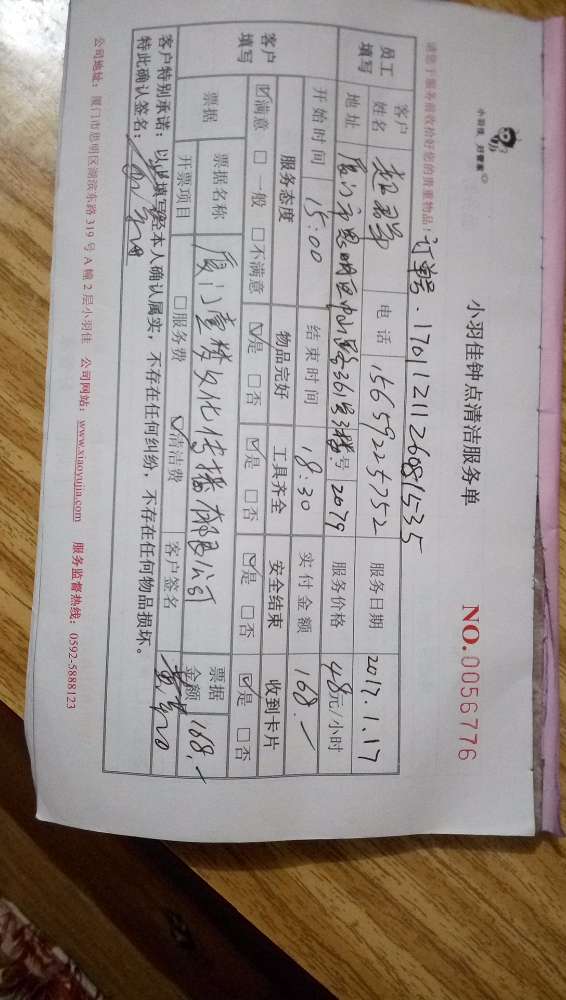 小羽佳，好管家
小羽佳钟点清洁服务单
NO.0056776
请您于服务前收拾好您的贵重物品！
订单号：17011211260815​35
员工填写
客户姓名
电话 15659225752
服务日期 2017.1.17
地址 厦门市思明区中山路361号3楼
号 2079
服务价格 48元/小时
开始时间 15:00
结束时间 18:30
实付金额 168.-
客户填写
服务态度 物品完好 工具齐全 安全结束 收到卡片
☑满意 □一般 □不满意 ☑是 □否 ☑是 □否 ☑是 □否 ☑是 □否
票据
票据名称 厦门 文化传播有限公司
票据金额 168.-
开票项目 □服务费 ☑清洁费
客户签名
客户特别承诺：以上填写经本人确认属实，不存在任何纠纷，不存在任何物品损坏。
特此确认签名：
公司地址：厦门市思明区湖滨东路319号A幢2层小羽佳 公司网站：www.xiaoyujia.com 服务监督热线：0592-5888123